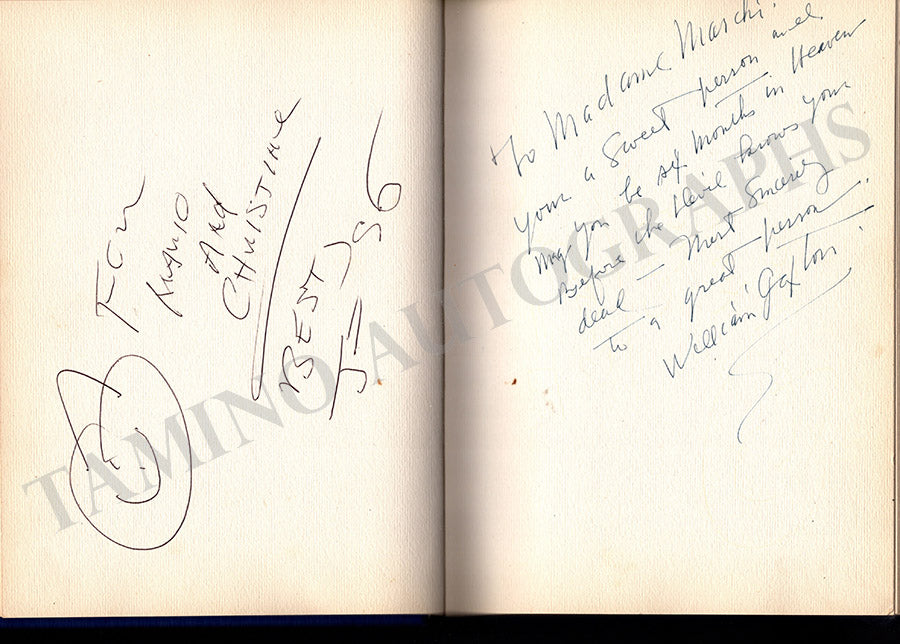 FOR
MARIO
AND
CHRISTINE
BEST,
J— 86
To Madame Marchi.
Your a Sweet person and
may you be six months in Heaven
Before the Devil knows your
dead — Most Sincerely
to a great person.
William Gaxton.
TAMINO AUTOGRAPHS